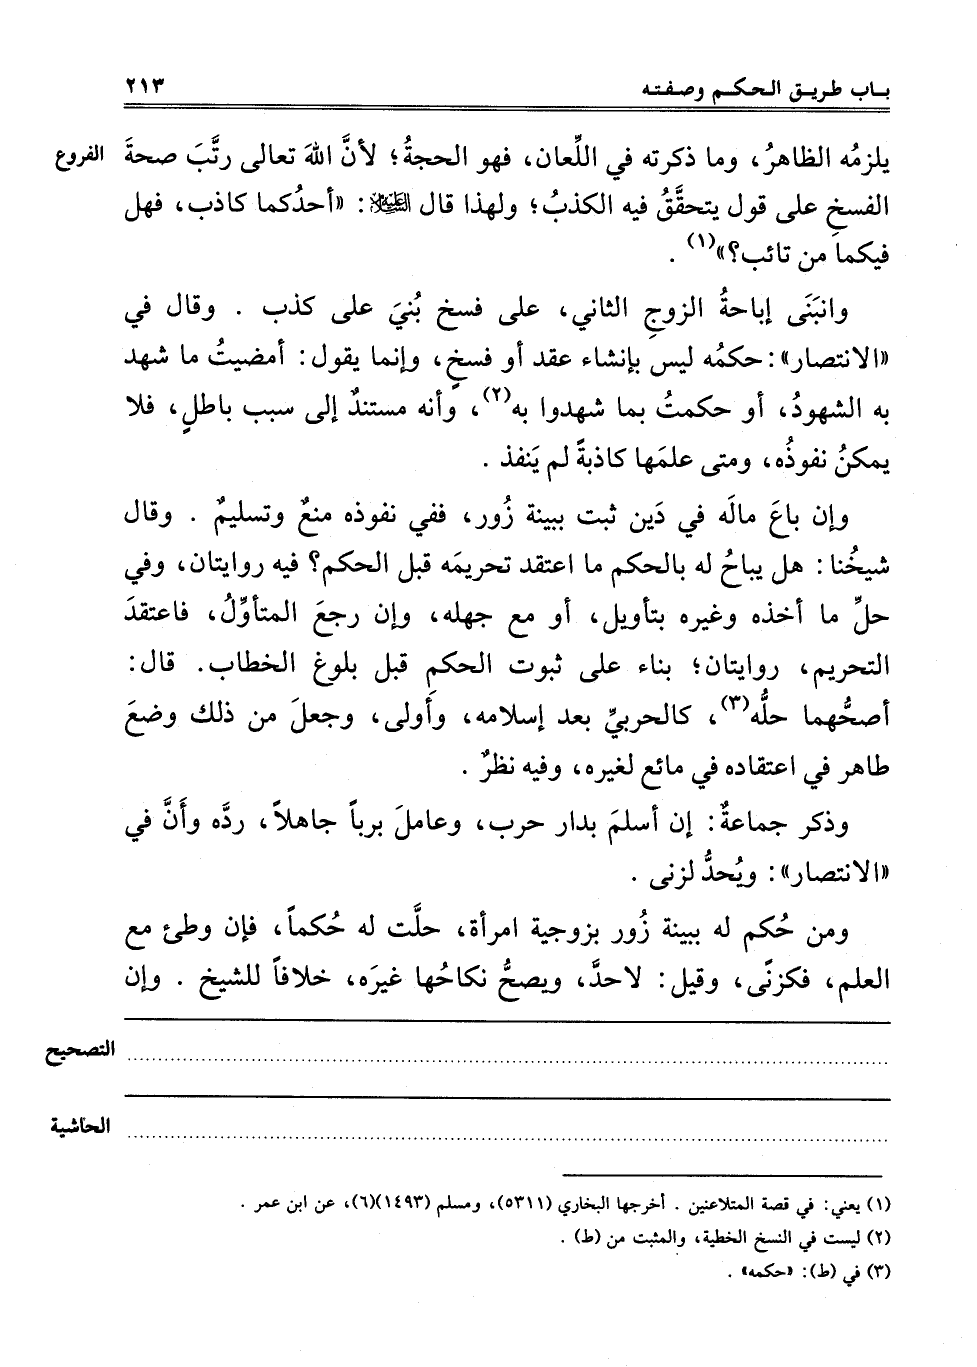 باب طريق الحكم وصفته ٢١٣
يلزمُه الظاهرُ، وما ذكرته في اللِّعان، فهو الحجةُ؛ لأنَّ اللهَ تعالى رتَّبَ صحةَ الفروع
الفسخِ على قول يتحقَّقُ فيه الكذبُ؛ ولهذا قال عليه السلام: «أحدُكما كاذب، فهل
فيكما من تائب؟»(١) .
وانبَنَى إباحةُ الزوجِ الثاني، على فسخ بُنيَ على كذب . وقال في
«الانتصار»: حكمُه ليس بإنشاء عقد أو فسخٍ، وإنما يقول: أمضيتُ ما شهد
به الشهودُ، أو حكمتُ بما شهدوا به(٢)، وأنه مستندٌ إلى سبب باطلٍ، فلا
يمكنُ نفوذُه، ومتى علمَها كاذبةً لم يَنفذ .
وإن باعَ مالَه في دَين ثبت ببينة زُور، ففي نفوذه منعٌ وتسليمٌ . وقال
شيخُنا: هل يباحُ له بالحكم ما اعتقد تحريمَه قبل الحكم؟ فيه روايتان، وفي
حلِّ ما أخذه وغيره بتأويل، أو مع جهله، وإن رجعَ المتأوِّلُ، فاعتقدَ
التحريم، روايتان؛ بناء على ثبوت الحكمِ قبل بلوغ الخطاب. قال:
أصحُّهما حلُّه(٣)، كالحربيِّ بعد إسلامه، وأَولى، وجعلَ من ذلك وضعَ
طاهر في اعتقاده في مائع لغيره، وفيه نظرٌ .
وذكر جماعةٌ: إن أسلمَ بدار حرب، وعاملَ برباً جاهلاً، ردَّه وأَنَّ في
«الانتصار»: ويُحدُّ لزنى .
ومن حُكم له ببينة زُور بزوجية امرأة، حلَّت له حُكماً، فإن وطئ مع
العلم، فكزنًى، وقيل: لاحدَّ، ويصحُّ نكاحُها غيرَه، خلافاً للشيخ . وإن
التصحيح
الحاشية
(١) يعني: في قصة المتلاعنين . أخرجها البخاري (٥٣١١)، ومسلم (١٤٩٣)(٦)، عن ابن عمر .
(٢) ليست في النسخ الخطية، والمثبت من (ط) .
(٣) في (ط): «حكمه» .